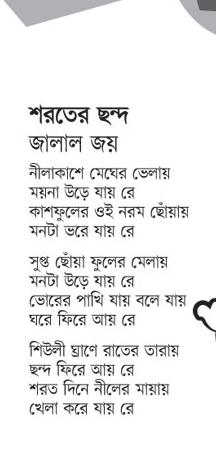 শরতের ছন্দ
জালাল জয়
নীলাকাশে মেঘের ভেলায়
ময়না উড়ে যায় রে
কাশফুলের ওই নরম ছোঁয়ায়
মনটা ভরে যায় রে
সুপ্ত ছোঁয়া ফুলের মেলায়
মনটা উড়ে যায় রে
ভোরের পাখি যায় বলে যায়
ঘরে ফিরে আয় রে
শিউলী ঘ্রাণে রাতের তারায়
ছন্দ ফিরে আয় রে
শরত দিনে নীলের মায়ায়
খেলা করে যায় রে